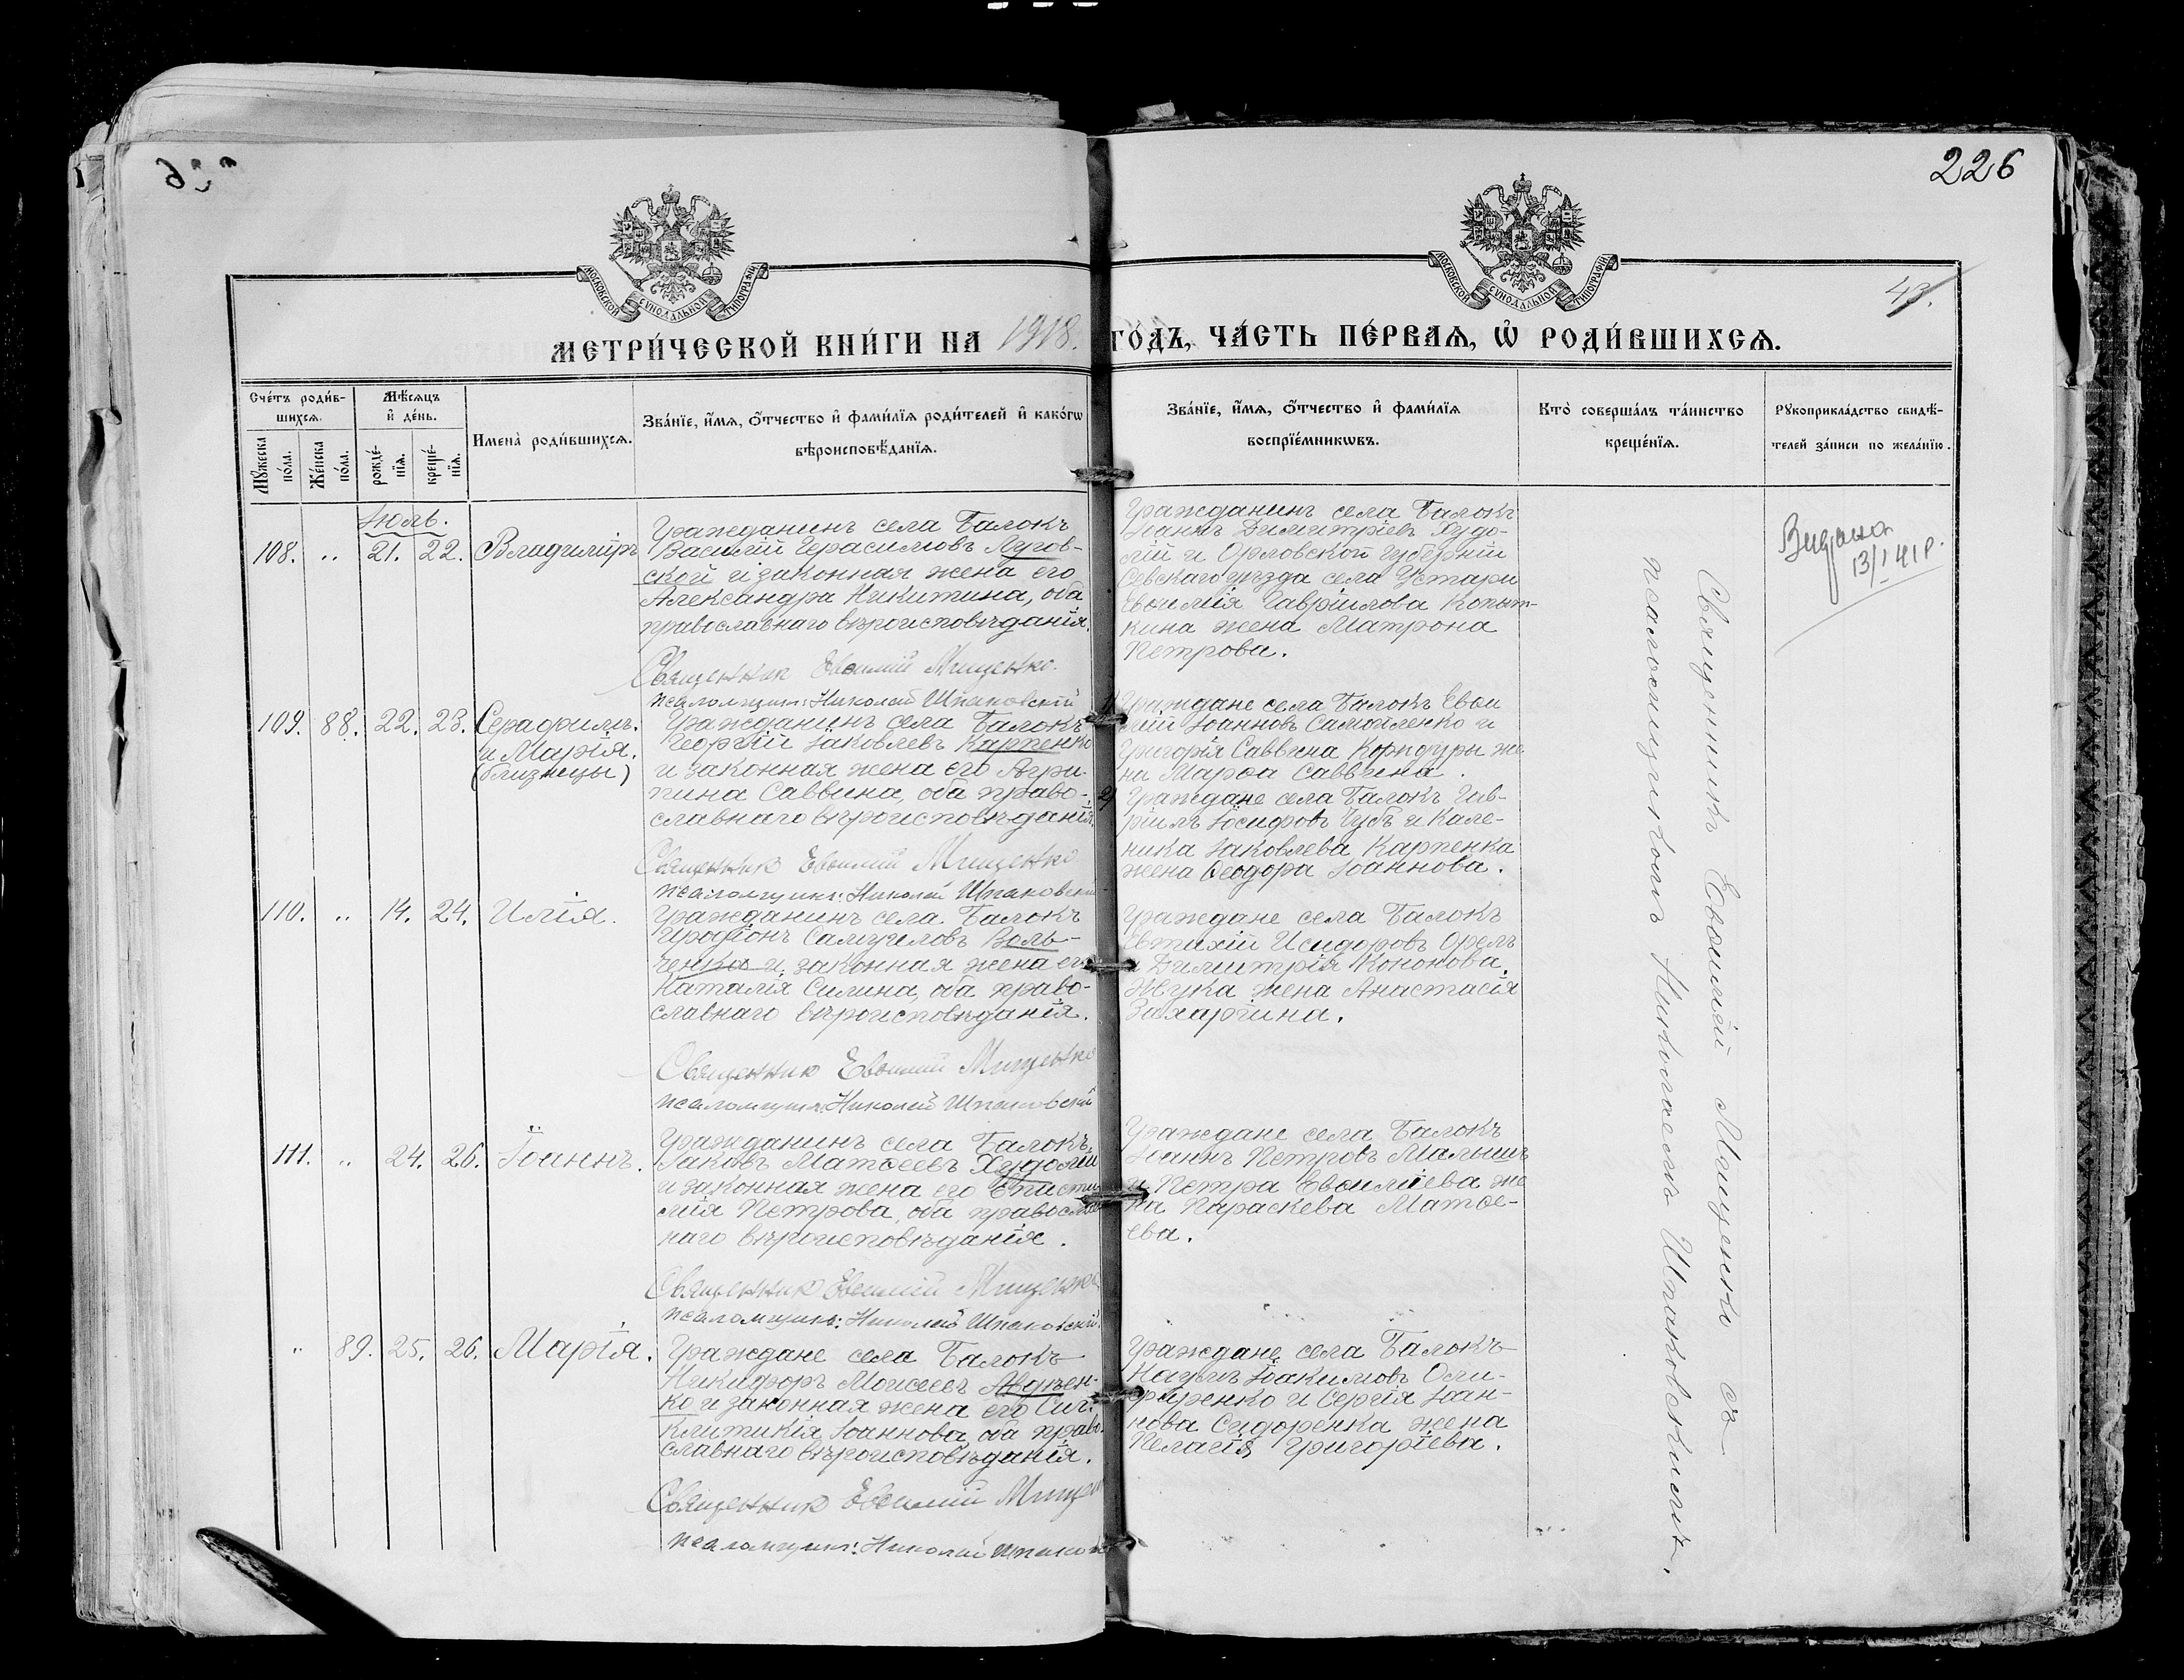 226
43.
МОСКОВСКОЙ СѴНОДАЛЬНОЙ ТИПОГРАФІИ
МОСКОВСКОЙ СѴНОДАЛЬНОЙ ТИПОГРАФІИ
МЕТРИ́ЧЕСКОЙ КНИ́ГИ НА 1918. ГО́ДЪ, ЧА́СТЬ ПЕ́РВАѦ, Ѡ҆ РОДИ́ВШИХСѦ.
Сче́тъ роди́в-
шихсѧ.
Мꙋ́жеска по́ла.
Же́нска по́ла.
Мѣ́сѧцъ
и҆ де́нь.
рожде́-
нїѧ.
креще́-
нїѧ.
И҆мена̀ роди́вшихсѧ.
Зва́нїе, и҆́мѧ, ѻ҆́тчество и҆ фами́лїѧ роди́телей и҆ како́гѡ
вѣроисповѣ́данїѧ.
Зва́нїе, и҆́мѧ, ѻ҆́тчество и҆ фами́лїѧ
воспрїе́мникѡвъ.
Кто̀ соверша́лъ та́инство
креще́нїѧ.
Рꙋкоприкла́дство свидѣ́-
телей за́писи по жела́нїю.
Іюль.
108. " 21. 22. Владиміръ
Гражданинъ села Балокъ
Василій Герасимовъ Лугов-
ской и законная жена его
Александра Никитина, оба
православнаго вѣроисповѣданія.
Священник Евѳимій Мищенко.
псаломщикъ: Николай Шпаковскій
Гражданинъ села Балокъ
Іоаннъ Димитріевъ Худо-
лій и Орловской губерніи
Севскаго уѣзда села Устари
Евѳимія Гавріилова Копыт-
кина жена Матрона
Петрова.
Видана
13/I 41 р.
109. 88. 22. 23. Серафимъ.
и Марія.
(близнецы)
Гражданинъ села Балокъ
Георгій Іаковлевъ Карпенко
и законная жена его Агри-
пина Саввина, оба право-
славнаго вѣроисповѣданія.
Священник Евѳимій Мищенко
псаломщикъ: Николай Шпаковскій
1) Граждане села Балокъ Евѳи
мій Іоанновъ Самойленко и
Григорія Саввина Корндуры же
на Марѳа Саввина.
2) Граждане села Балокъ Гав-
ріилъ Іосифовъ Чубъ и Кале-
ника Іаковлева Карпенка
жена Ѳеодора Іоаннова.
110. " 14. 24. Илія.
Гражданинъ села Балокъ
Иродіонъ Самуиловъ Воль-
ченко и законная жена его
Наталія Силина, оба право-
славнаго вѣроисповѣданія.
Священник Евѳимій Мищенко
псаломщикъ: Николай Шпаковскій
Граждане села Балокъ
Евтихій Исидоровъ Орелъ
и Димитрія Кононова
Жука жена Анастасія
Захаріина.
111. " 24. 26. Іоаннъ.
Гражданинъ села Балокъ
Іаковъ Матѳеевъ Худолій
и законная жена его Еписти
мія Петрова, оба православ
наго вѣроисповѣданія.
Священник Евѳимій Мищенко
псаломщикъ: Николай Шпаковскій.
Граждане села Балокъ
Іоаннъ Петровъ Малышъ
и Петра Евѳиміева же
на Параскева Матѳе-
ева.
" 89. 25. 26. Марія.
Граждане села Балокъ
Никифоръ Моисеевъ Авдѣен-
ко и законная жена его Син-
клитикія Іоаннова, оба право-
славнаго вѣроисповѣданія.
Священник Евѳимій Мищен
псаломщикъ: Николай Шпаков
Граждане села Балокъ
Наумъ Іоакимовъ Оли-
фиренко и Сергія Іоан-
нова Сидоренка жена
Пелагія Григоріева.
Священникъ Евѳимій Мищенко съ
псаломщикомъ Николаемъ Шпаковскимъ.